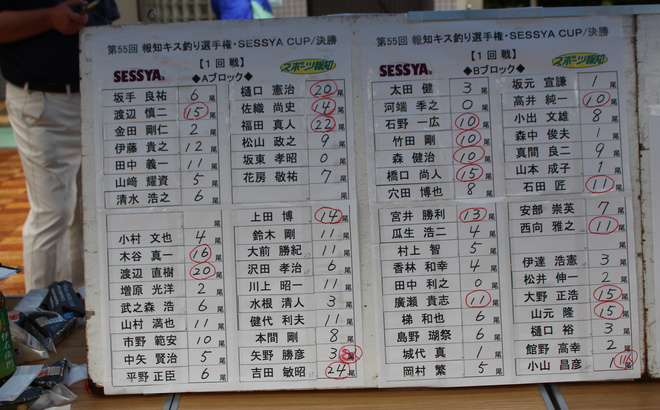 第55回 報知キス釣り選手権・SESSYA CUP/決勝
【1回戦】
SESSYA
◆Aブロック◆
スポーツ報知
坂手 良祐 6尾
渡辺 慎二 15尾
金田 剛仁 2尾
伊藤 貴之 12尾
田中 義一 11尾
山﨑 耀資 5尾
清水 浩之 6尾
小村 文也 4尾
木谷 真一 16尾
渡辺 直樹 20尾
増原 光洋 2尾
武之森 浩 6尾
山村 満也 11尾
市野 範安 10尾
中矢 賢治 5尾
平野 正臣 6尾
樋口 憲治 20尾
佐織 尚史 14尾
福田 真人 22尾
松山 政之 9尾
坂東 孝昭 0尾
花房 敬祐 7尾
尾
上田 博 14尾
鈴木 剛 11尾
大前 勝紀 11尾
沢田 孝治 6尾
川上 昭一 11尾
水根 清人 3尾
健代 利夫 11尾
本間 剛 8尾
矢野 勝彦 3尾
吉田 敏昭 24尾
第55回 報知キス釣り選手権・SESSYA CUP/決勝
【1回戦】
SESSYA
◆Bブロック◆
スポーツ報知
太田 健 3尾
河端 季之 0尾
石野 一広 10尾
竹田 剛 10尾
森 健治 10尾
橋口 尚人 15尾
穴田 博也 8尾
宮井 勝利 13尾
瓜生 浩二 4尾
村上 智 5尾
香林 和幸 4尾
田中 利之 0尾
廣瀬 貴志 11尾
梯 和也 6尾
島野 瑚祭 6尾
城代 真 1尾
岡村 繁 5尾
坂元 宣謙 1尾
高井 純一 10尾
小出 文雄 8尾
森中 俊夫 1尾
真間 良二 9尾
山本 成子 1尾
石田 匠 11尾
安部 崇英 7尾
西向 雅之 11尾
尾
伊達 浩憲 3尾
松井 伸一 2尾
大野 正浩 15尾
山元 隆 15尾
樋口 裕 3尾
館野 高幸 2尾
小山 昌彦